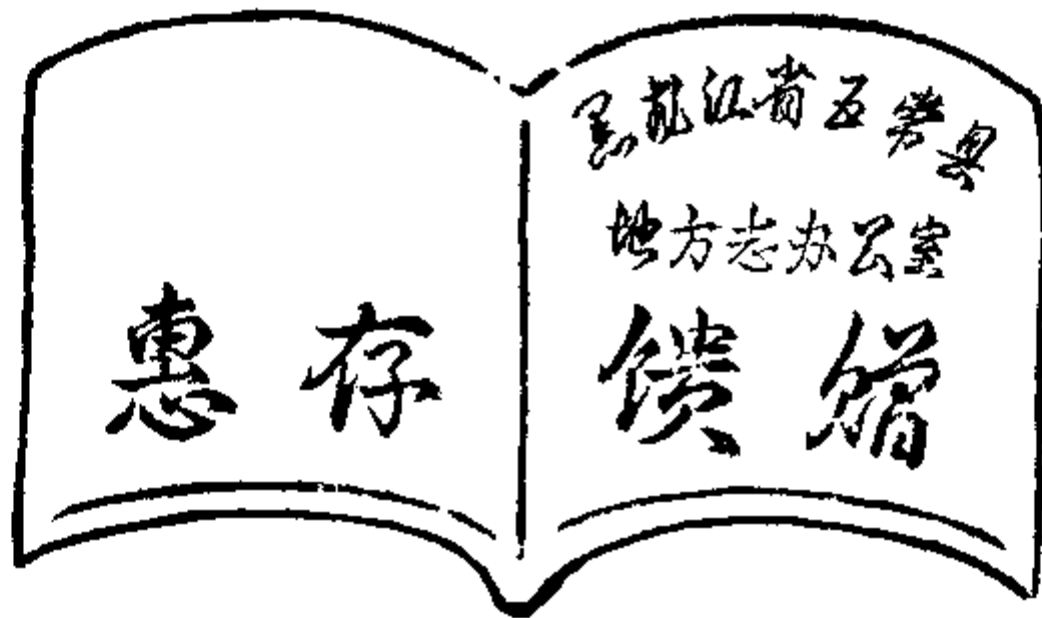 惠存
黑龙江省五常县
地方志办公室
馈赠